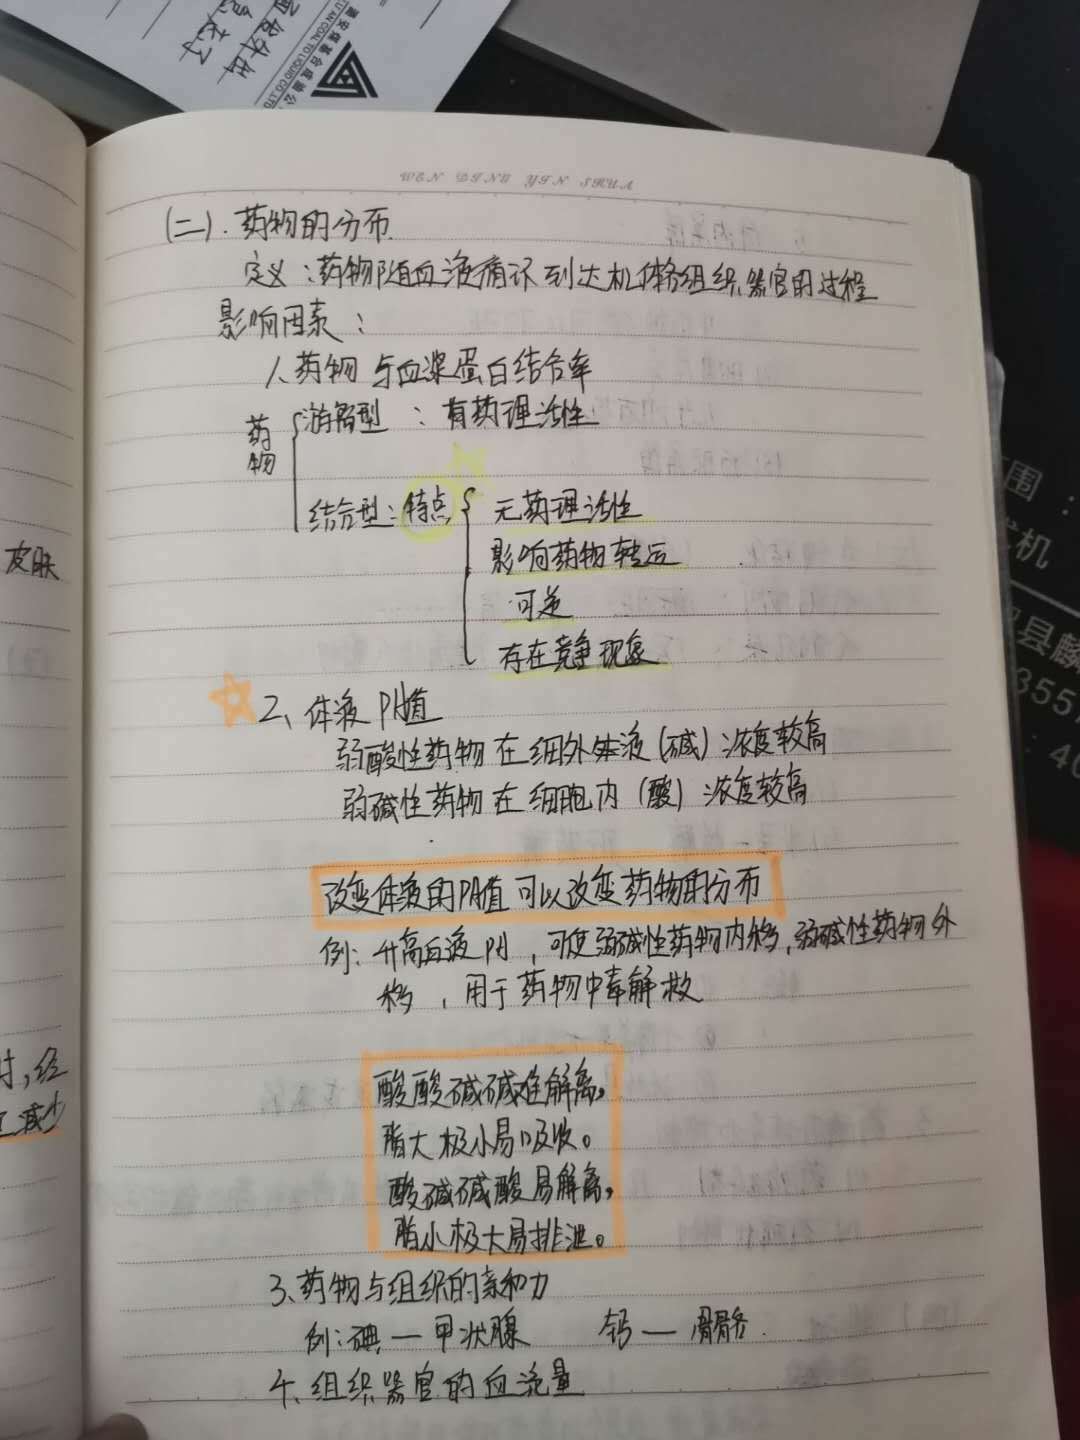 西安煤基合成油公
I'AN COAL TO LIQUID CO.LTD
WEN DING YIN SHUA
(二).药物的分布
定义:药物随血液循环到达机体各组织器官的过程
影响因素:
1.药物与血浆蛋白结合率
药物
游离型:有药理活性
结合型:特点
无药理活性
影响药物转运
可逆
存在竞争现象
2、体液PH值
弱酸性药物在细外体液(碱)浓度较高
弱碱性药物在细胞内(酸)浓度较高
改变体液的PH值可以改变药物的分布
例:升高血液PH,可使弱碱性药物内移,弱碱性药物外
移,用于药物中毒解救
酸酸碱碱难解离,
脂大极小易吸收。
酸碱碱酸易解离,
脂小极大易排泄。
3、药物与组织的亲和力
例:碘—甲状腺 钙—骨骼
4、组织器官的血流量
皮肤
时,经
减少
围:
机
县麟
355
:40